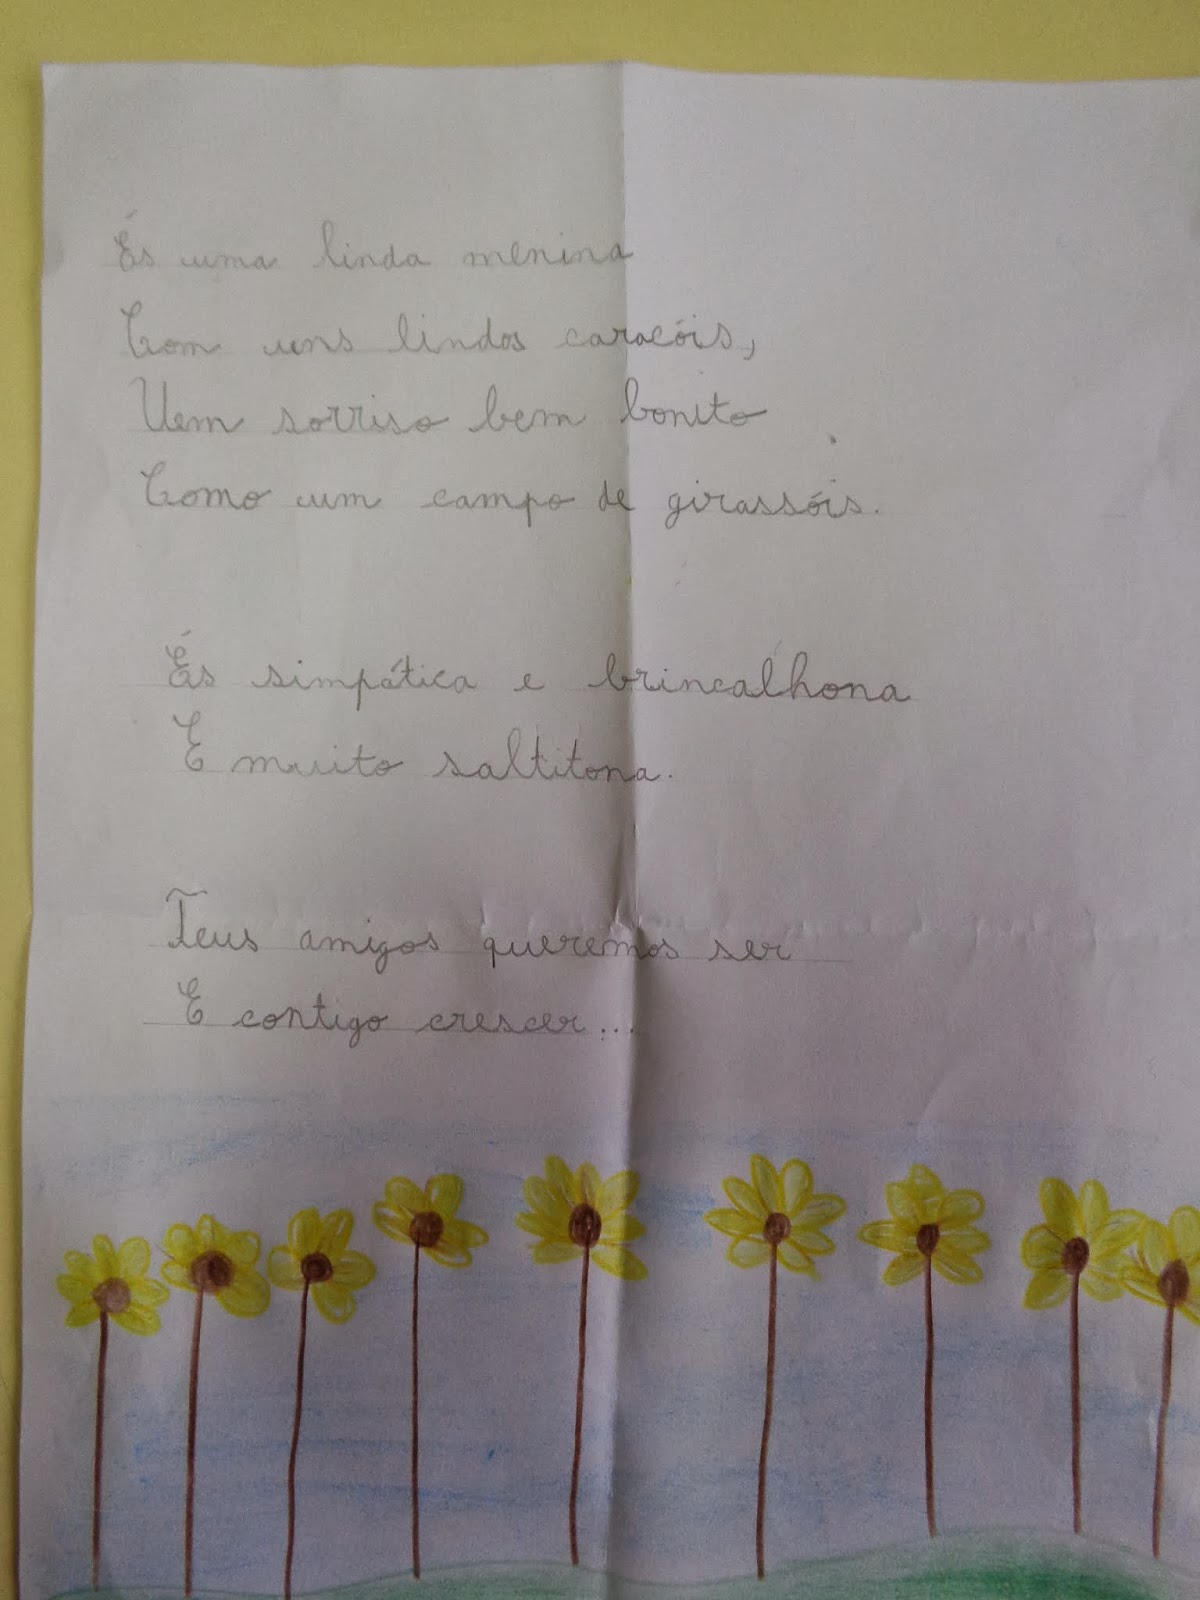 És uma linda menina
Com uns lindos caracóis,
Um sorriso bem bonito
Como um campo de girassóis.
És simpática e brincalhona
E muito saltitona.
Teus amigos queremos ser
E contigo crescer...